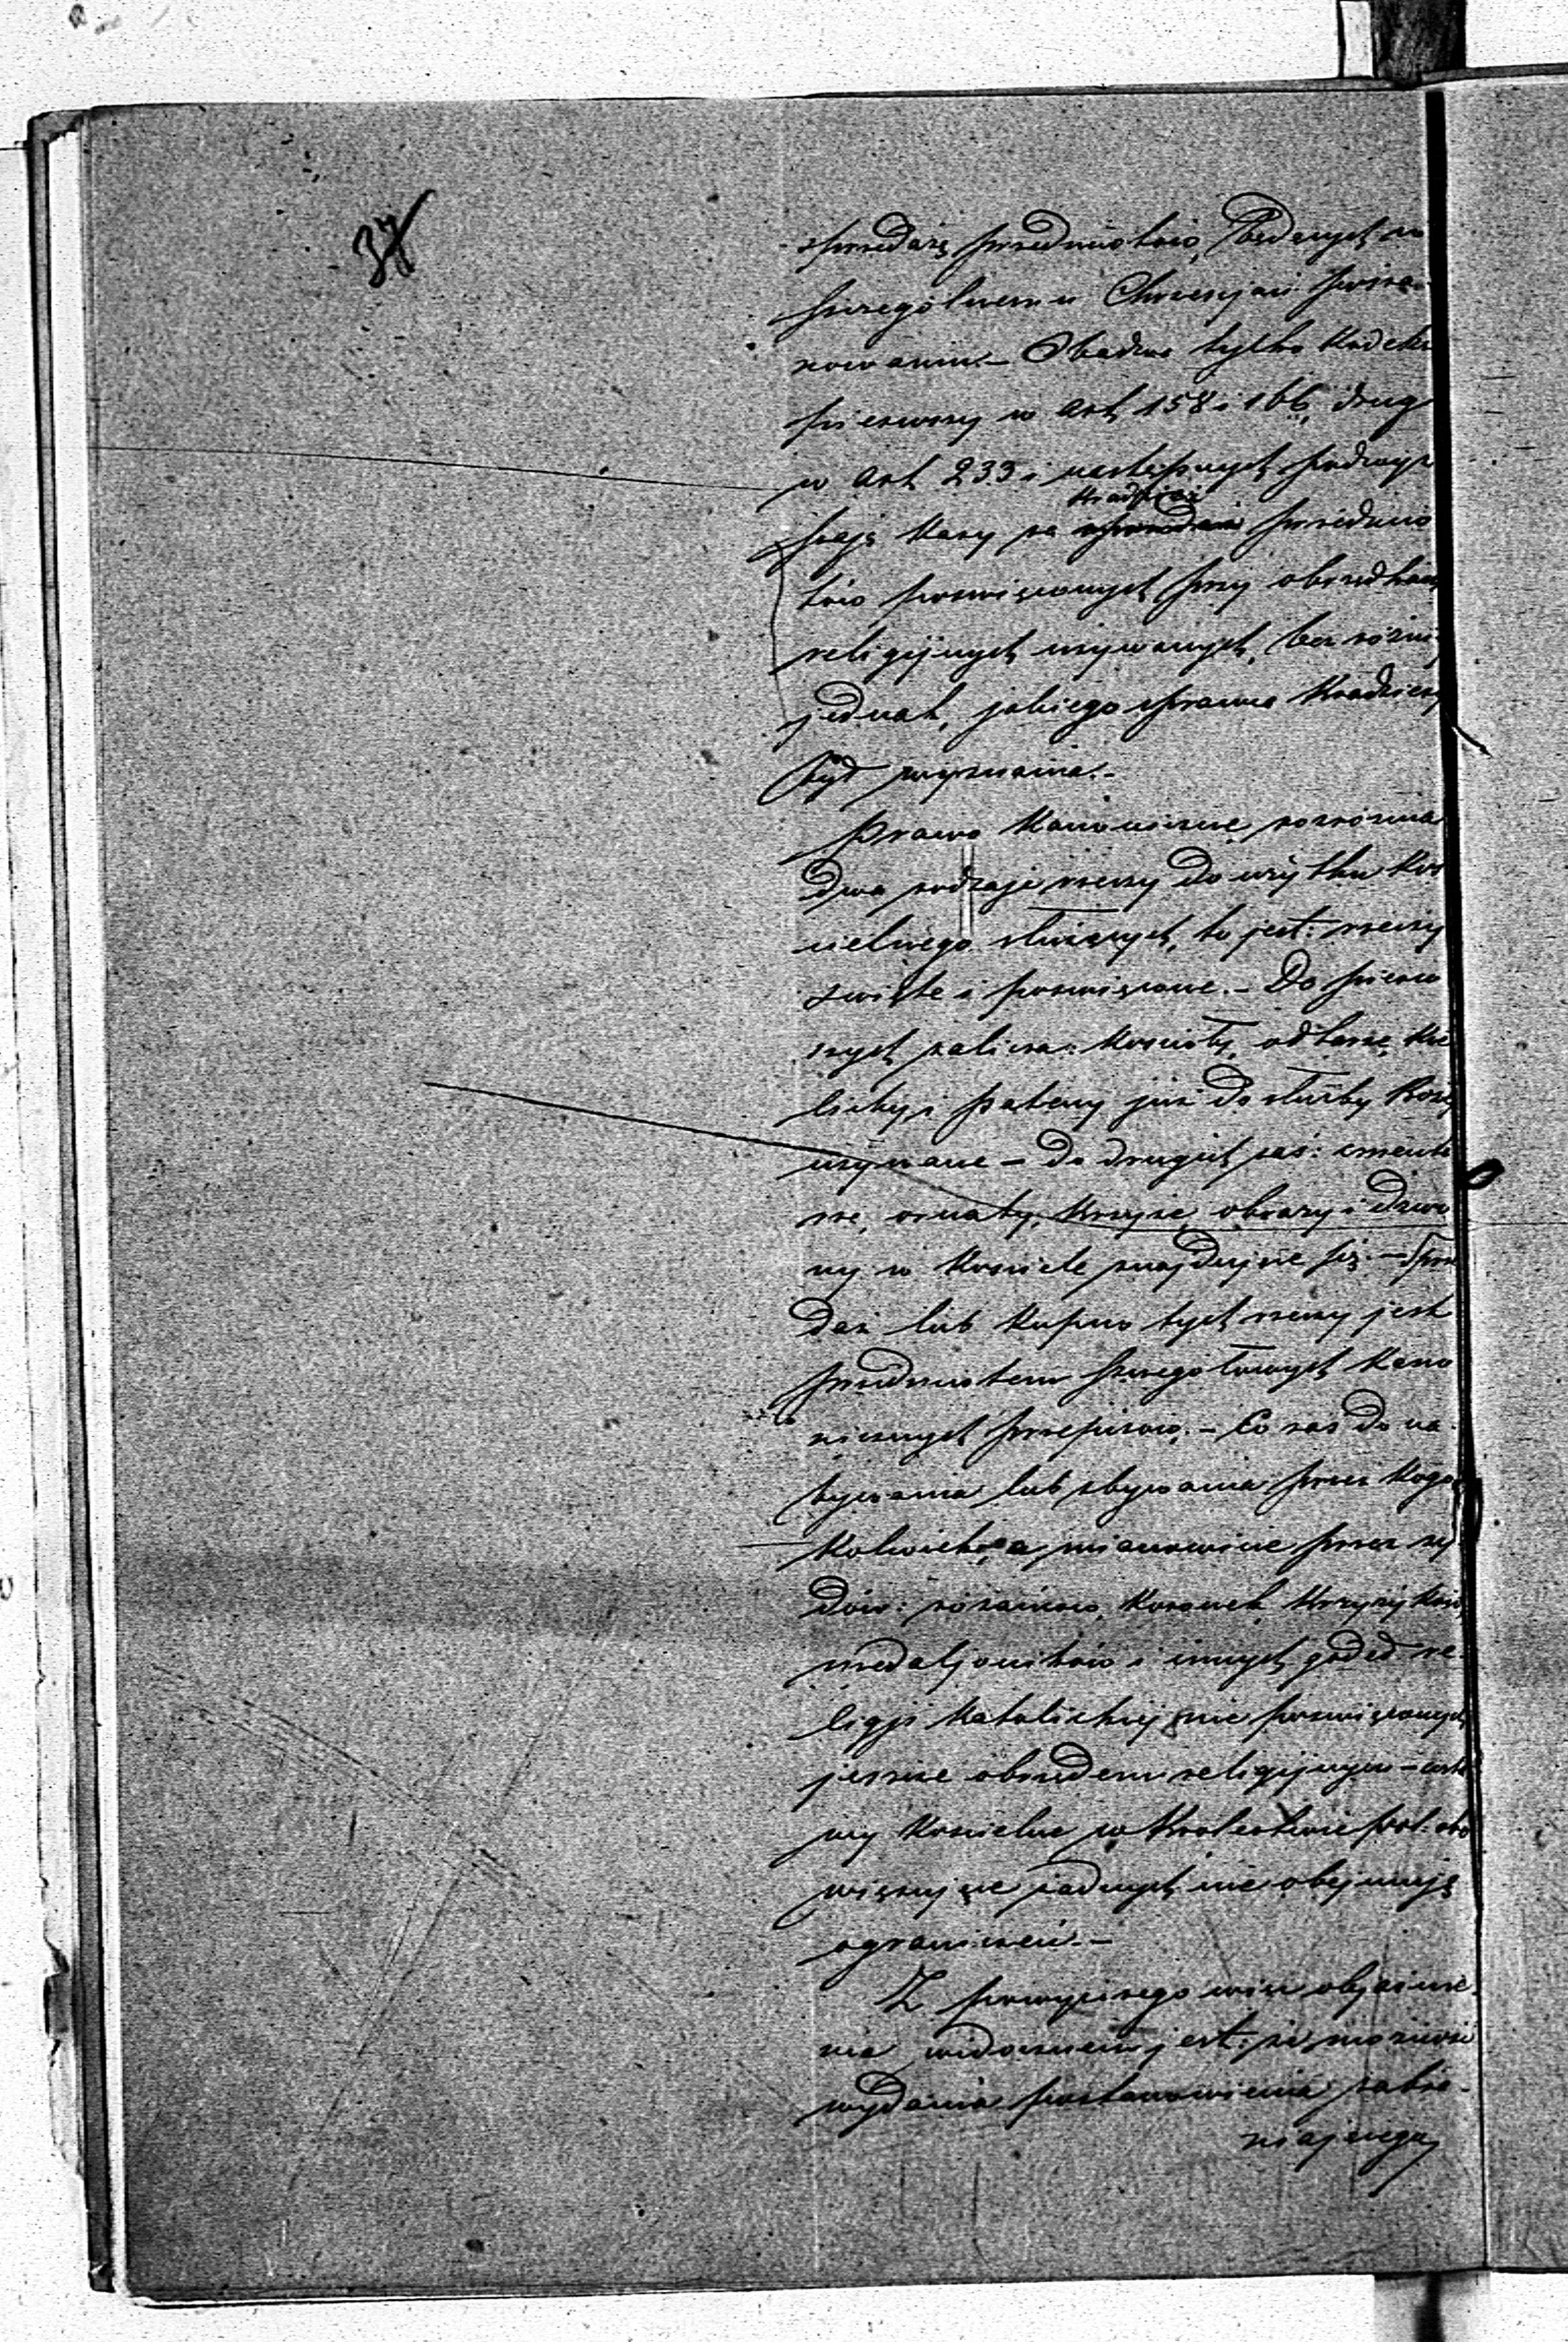 37
sprzedażą przedmiotów, będących w
szczególnem u Chrześcijan posza-
nowaniu. – Obadwa tylko Kodeksa
pierwszy w art. 158 i 166, drugi
w art. 233 i następnych podwyż
szają kary za kradzież przedmio
tów poświęconych przy obrzędkach
religijnych używanych, bez różnicy
jednak, jakiego sprawca kradzieży
był wyznania. –
Prawo Kanoniczne rozróżnia
dwa rodzaje rzeczy do użytku Koś
cielnego służących, to jest: rzeczy
święte i poświęcone. – Do pierw
szych zalicza: Kościoły, ołtarze, Kie
lichy i pateny już do służby Bożej
używane – do drugich zaś: cmenta
rze, ornaty, Krzyże, obrazy i dzwo
ny w Kościele znajdujące się. – Sprze
daż lub Kupno tych rzeczy jest
przedmiotem szczegółowych Kano
nicznych przepisów. – Co zaś do na-
bywania lub zbywania przez Kogo
Kolwiek, a mianowicie przez ży
dów: różańców, Koronek, Krzyżyków,
medaljoników i innych godeł re-
ligji Katolickiej nie poświęconych
jeszcze obrzędem religijnym – usta
wy Kościelne w Królestwie Pol. obo
wiązujące żadnych nie obejmują
ograniczeń. –
Z powyższego więc objaśnie-
nia widocznem jest: że
wydania postanowienia zabra-
niającego